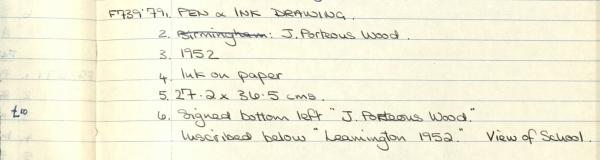 F739'79. 1. PEN & INK DRAWING.
2. Birmingham: J. Porteous Wood.
3. 1952
4. Ink on paper
5. 27.2 x 36.5 cms.
£10 6. Signed bottom left "J. Porteous Wood."
Inscribed below "Leamington 1952." View of School.